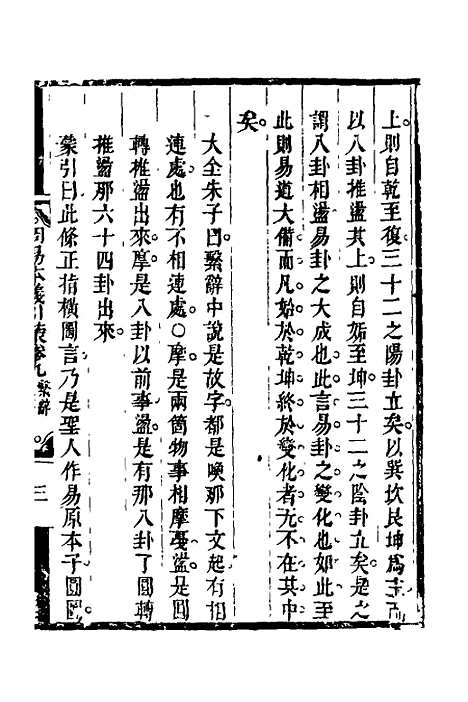 上。則自乾至復。三十二之陽卦立矣。以巽坎艮坤為主而
以八卦推盪其上。則自姤至坤。三十二之陰卦立矣。是之
謂八卦相盪易卦之大成也。此言易卦之變化也如此至
此則易道大備而凡始於乾坤終於變化者无不在其中
矣。
大全朱子曰繫辭中說是故字。都是喚那下文起有相
連處也。有不相連處。○摩是兩箇物事相摩戞。盪是圓
轉推盪出來。摩是八卦以前事。盪是有那八卦了。圓轉
推盪那六十四卦出來。
蒙引曰此條正指橫圖言乃是聖人作易原本子。圓圖。
周易本義引蒙卷九 繫辭 三